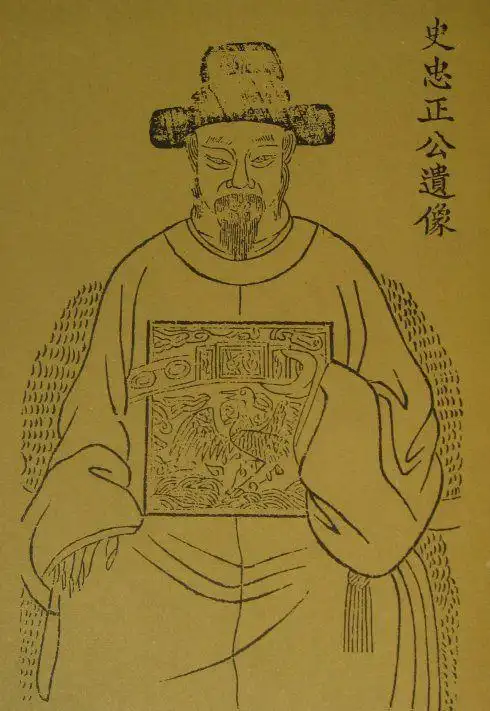 史忠正公遺像